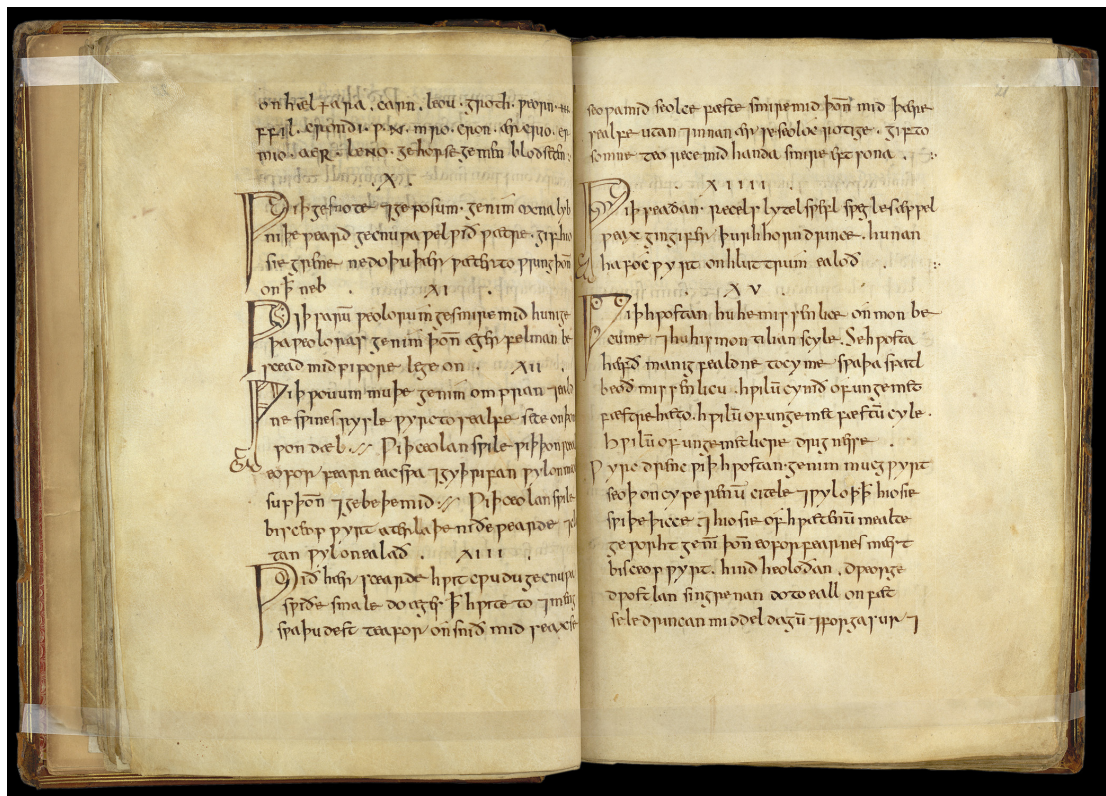 on hæl fara . carn . leou . groth . ƿeorn . iii
ffil . crondi . p . N . mro . cron . ær crio . er
mio . aeR . leNo . ge horse ge men blodseten :
. X .
Ƿiþ gesnote ⁊ geposum . genim oxna lyb
niþeƿeard gecnuƿa ƿel ƿið ƿætre . gif hio
sie grene ne do þu þær ƿæter to ƿring þoñ
on ꝥ neb . XI
Ƿiþ sarū ƿeolorum gesmire mid hunige
þa ƿeoloras genim þoñ æges felman be
scead mid pipore lege on . XII .
Ƿiþ ƿouum muþe genim ompran ⁊ eald
ne sƿines rysle ƿyrc to sealfe sete on þon
ƿon dæl . Ƿiþ ceolan sƿile ƿiþ þon sceal
eofor fearn eac sƿa ⁊ gyþrifan ƿyl on
sup þoñ ⁊ gebeþe mid . Ƿiþ ceolan sƿile
bisceop ƿyrt atterlaþe niðeƿearde ⁊ cla
tan ƿyl on ealað . XIII .
Ƿið hær scearde hƿit cƿudu gecnuƿa
sƿiðe smale do æges ꝥ hƿite to ⁊ meng
sƿa þu dest teafor onsnið mid seaxe
seoƿa mid seolce fæste smire mid þoñ mid þære
sealfe utan ⁊ innan ær se seoloc rotige . gif to
somne teo rece mid handa smire eft sona .
XIIII .
Ƿiþ seadan . recels lytel sƿefl sƿegles æppel
ƿeax gingifer þurh horn drince . hunan
haroc ƿyrt on hluttrum ealoð .
XV
Ƿiþ hƿostan hu he missenlice on mon be
cume ⁊ hu his mon tilian scyle . Se hƿosta
hæfð manigfealdne tocyme sƿa þa spatl
beoð missenlicu . hƿilū cymð of ungemet
fæstre hæto . hƿilū of ungemet fæstū cyle .
hƿilū of ungemetlicre drignesse .
Ƿyrc drenc ƿiþ hƿostan . genim mucgƿyrt
seoþ on cyperenū citele ⁊ ƿyl oþꝥ hio sie
sƿiþe þicce ⁊ hio sie of hƿætenū mealte
geƿorht genī þoñ eofor fearnes mæst
bisceop ƿyrt . hind heoloðan . dƿeorge
dƿostlan singrenan do to eall on fæt
sele drincan middeldagū ⁊ forga sur ⁊